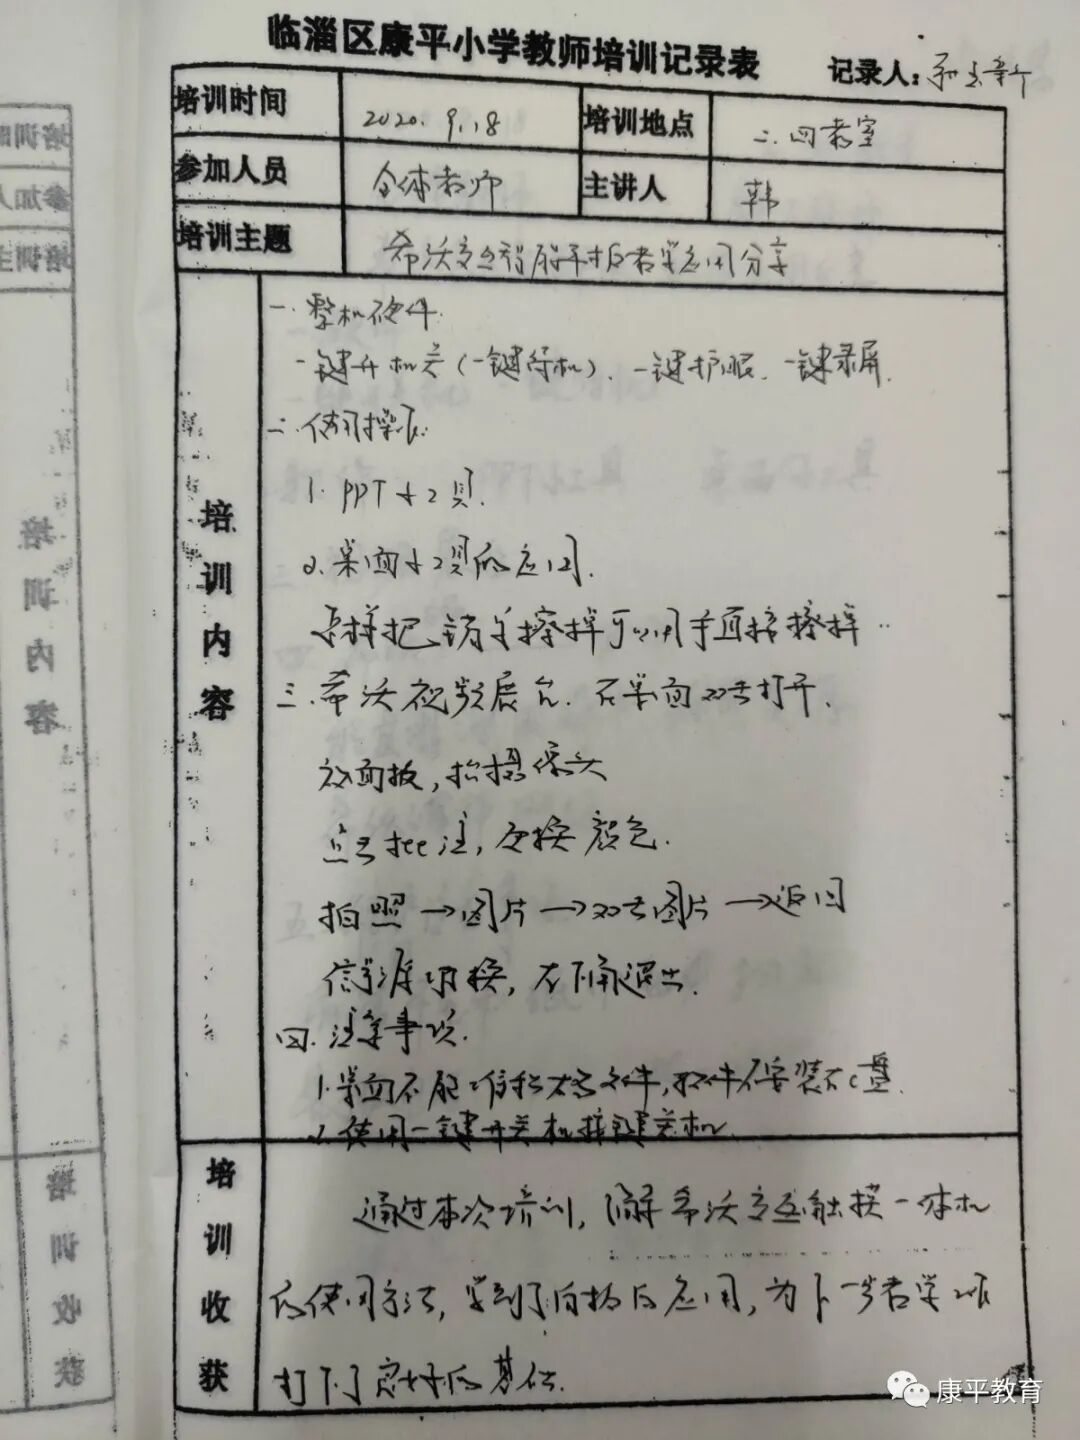 临淄区康平小学教师培训记录表
记录人：
培训时间 2020.9.18 培训地点 二.四教室
参加人员 全体教师 主讲人 韩
培训主题 希沃交互智能平板教学应用分享
培训内容
一.整机硬件.
一键开机关(一键待机).一键护眼.一键录屏.
二.使用操作.
1.PPT小工具.
2.桌面小工具的应用.
怎样把错字擦掉可以用手直接擦掉..
三.希沃视频展台.在桌面双击打开.
放面板,抬摄像头
点击批注,更换颜色.
拍照→图片→双击图片→返回
信号源切换,右下角退出.
四.注意事项.
1.桌面不能堆积太多文件,软件不安装在C盘.
2.使用一键开关机按键关机.
培训收获
通过本次培训,了解希沃交互触摸一体机
的使用方法,学到了白板的应用,为下一步教学工作
打下了良好的基础.
康平教育
培训内容
培训收获